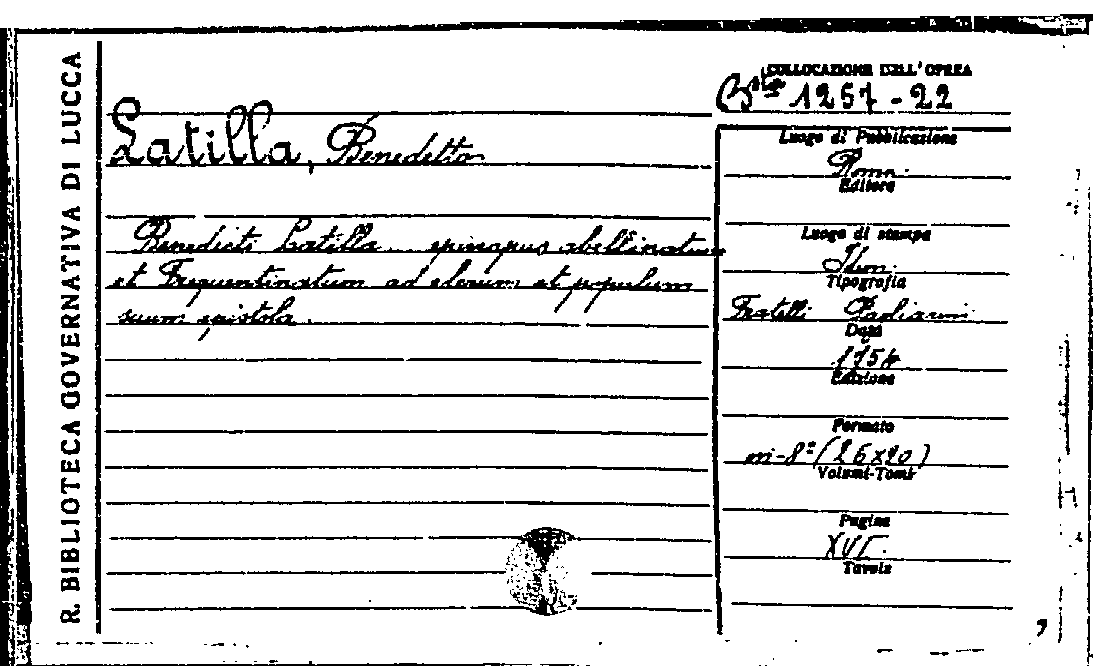 R. BIBLIOTECA GOVERNATIVA DI LUCCA
COLLOCAZIONE DELL'OPERA
Bta 1257-22
Latilla, Benedetto
Benedicti Latilla ... episcopus abellinatum
et Frequentinatum ad clerum et populum
suum epistola.
Luogo di Pubblicazione
Roma.
Editore
Luogo di stampa
Idem.
Tipografia
Fratelli Pagliarini
Data
1754
Edizione
Formato
in-8° (26x20)
Volumi-Tomi
Pagine
XVI.
Tavole